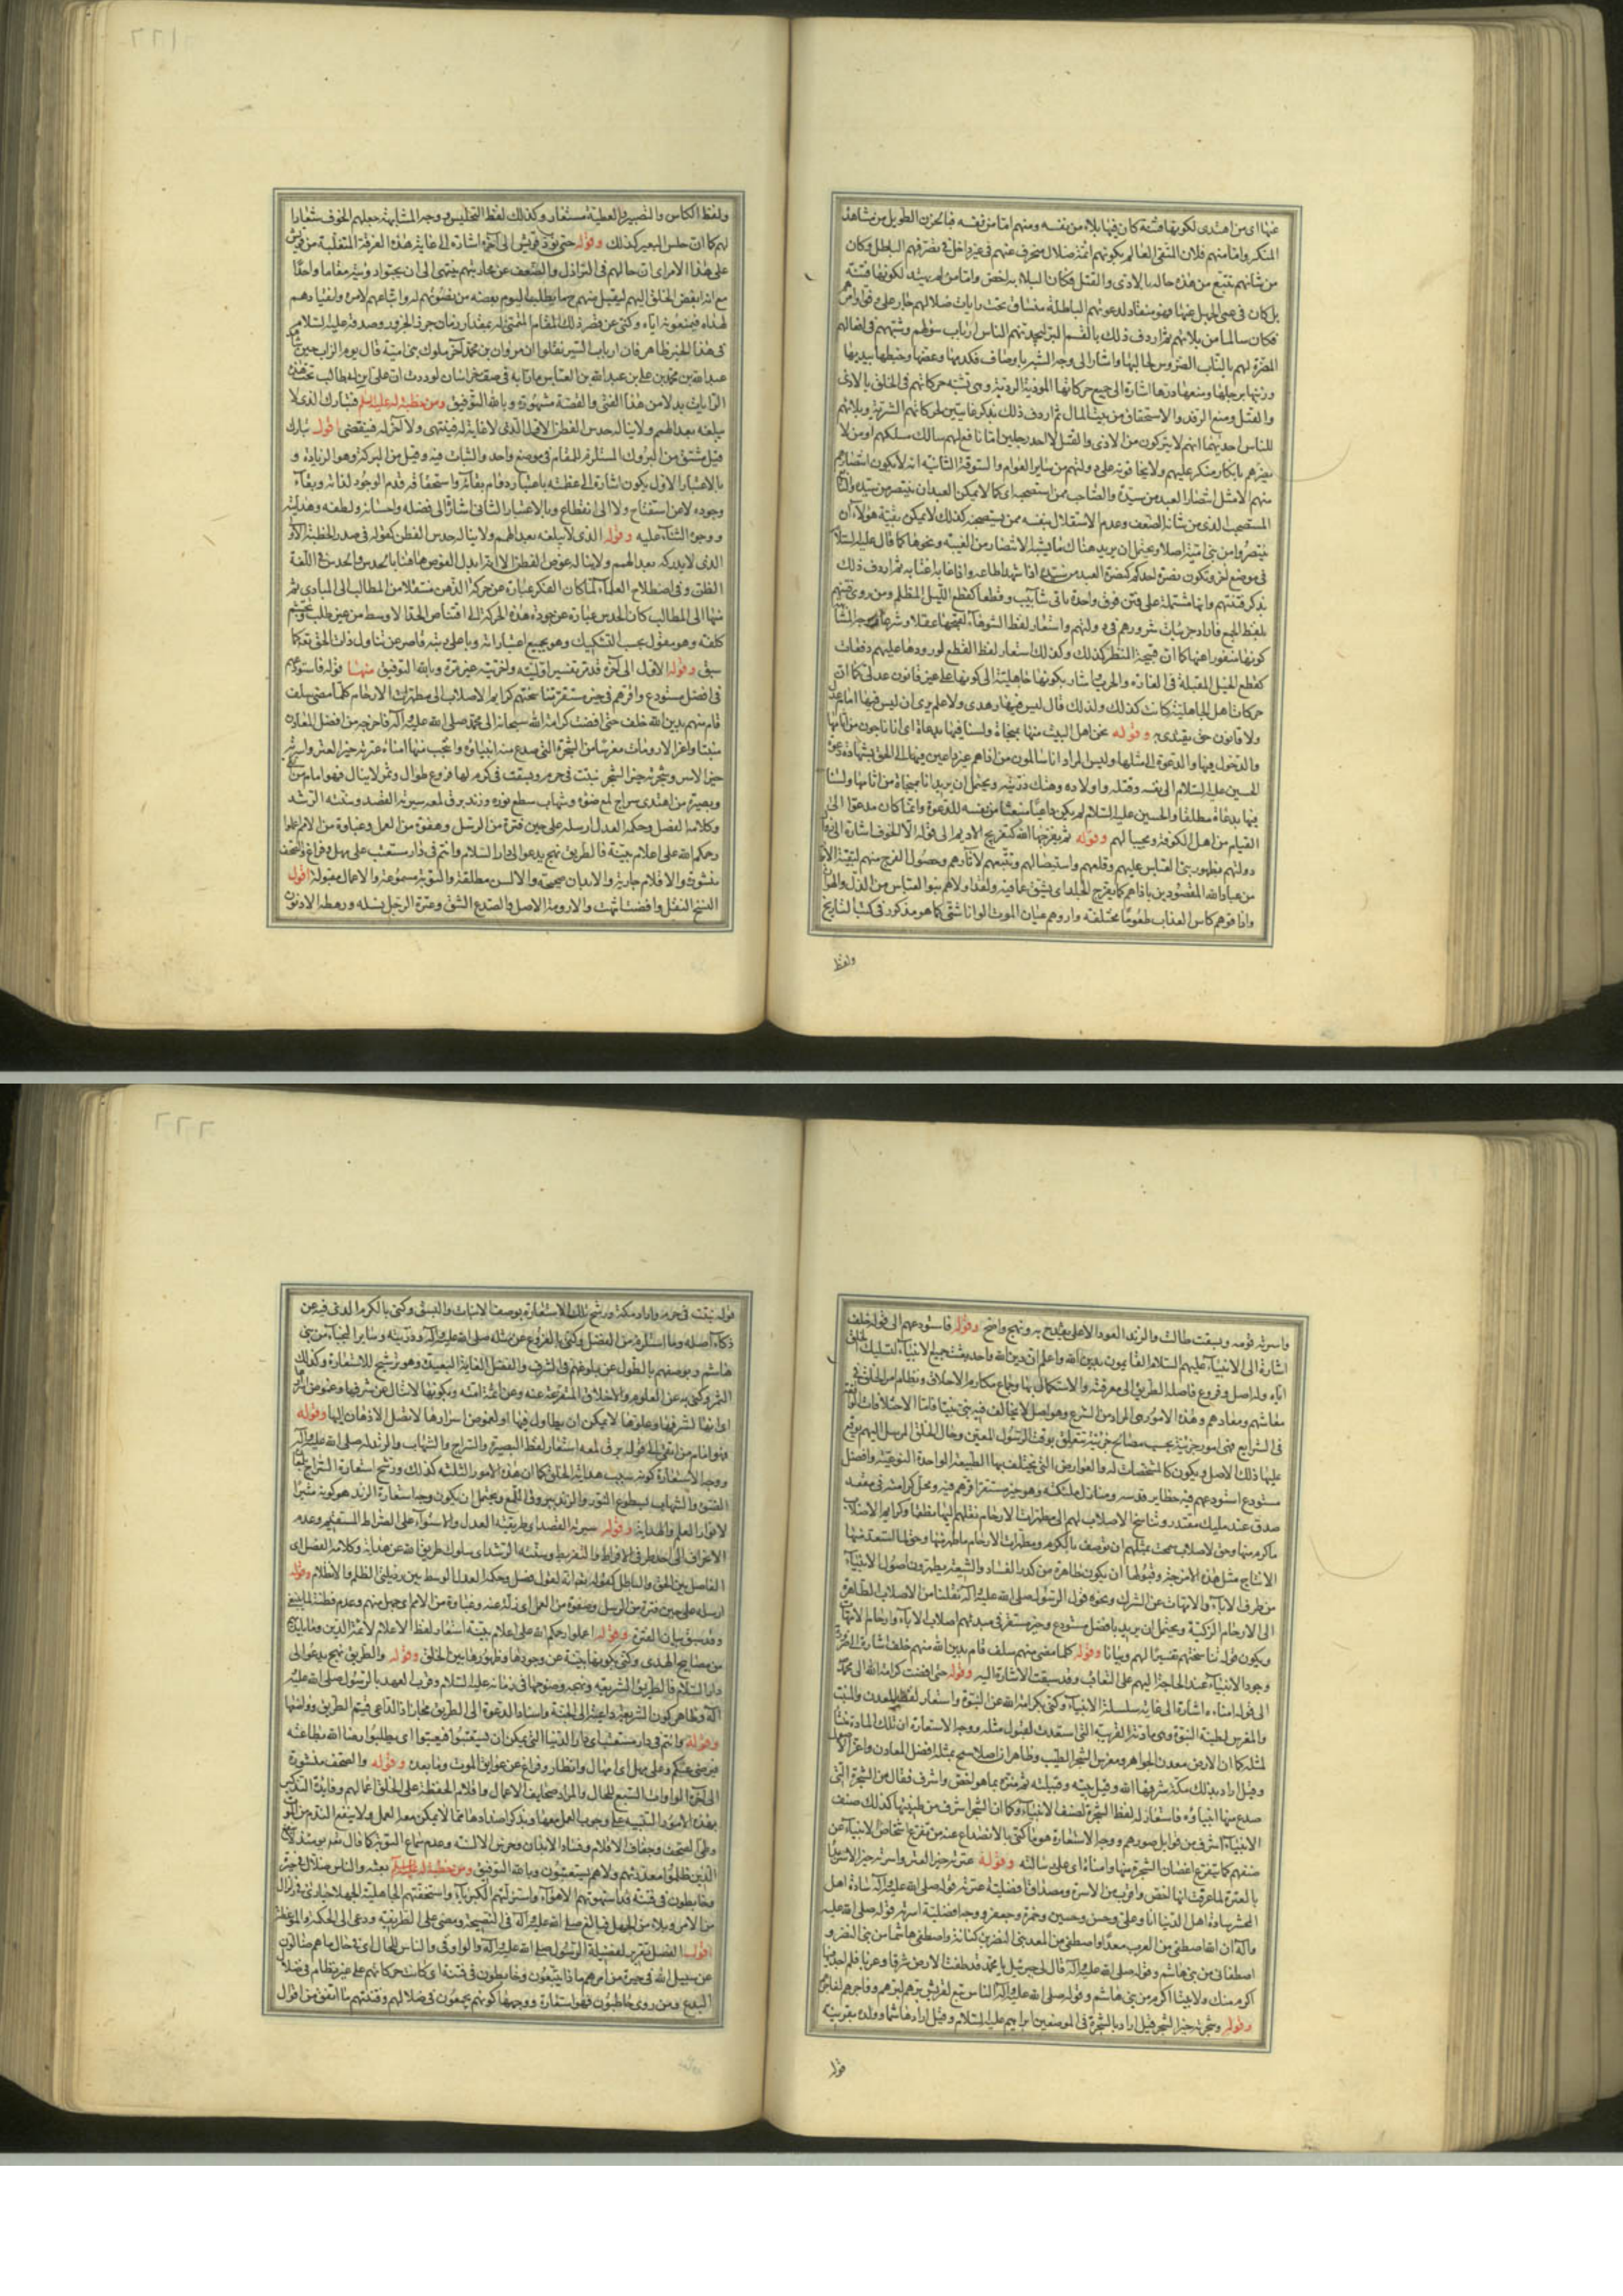 عنها اى من اهتدى لكونها فتنة كان فيها بلاء من نفسه ومنهم اما من نفسه فبالحزن الطويل من مشاهدة
المنكر واما منهم فلان المتقى العالم بكونهم ائمة ضلال منحرف عنهم غير داخل فى تصرفهم الباطل وكان
من شانهم تتبع من هذه حاله بالاذى والقتل فكان البلاء به اخص واما من لم يهتد لكونها فتنة
بل كان فى عمى الجهل عنها فهو منقاد لدعوتهم الباطلة منساق تحت رايات ضلالهم جار على وفق اوامرهم
فكان سالما من بلائهم ثم اردف ذلك بالقسم البر ليجدنهم الناس ارباب سوء لهم وشبههم فى افعالهم
المضرة لهم بالناب الضروس لحالبها واشار الى وجه الشبه باوصاف فكدمها وعضها وخبطها بيديها
وزبنها برجلها ومنعها درها اشارة الى جميع حركاتها الموذية الردية وهى تشبه حركاتهم فى الخلق بالاذى
والقتل ومنع الرفد والاستحقاق من بيت المال ثم اردف ذلك بذكر غايتين لحركاتهم الشرية وبلائهم
للناس احديهما انهم لا يتركون من الاذى والقتل الا احد رجلين اما نافع لهم سالك مسلكهم او من لا
يضرهم بانكار منكر عليهم ولا يخافونه على دولتهم من ساير العوام والسوقة الثانية انه لا يكون انتصارهم
منهم الا مثل انتصار العبد من سيده والصاحب ممن استصحبه اى كما لا يمكن العبد ان ينتصر من سيده والتابع
المستصحب الذى من شانه الضعف وعدم الاستقلال بنفسه ممن يستصحبه كذلك لا يمكن بقية هؤلاء ان
ينتصروا من بنى امية اصلا ويحتمل ان يريد هناك ما يشبه الانتصار من الغيبة ونحوها كما قال عليه السلام
فى موضع اخر وتكون نصرة احدكم كنصرة العبد من سيده اذا شهد اطاعه واذا غاب اغتابه ثم اردف ذلك
بذكر فتنتهم وانها مشتملة على فتن فوق واحدة تاتى شآبيب وقطعا كقطع الليل المظلم ومن روى فتنتهم
بلفظ الجمع فاراد جزئيات شرورهم فى دولتهم واستعار لفظ الشوهاء لقبحها عقلا وشرعا ووجه المشابهة
كونها منفورا عنها كما ان قبيحة المنظر كذلك وكذلك استعار لفظ القطع لورودها عليهم دفعات
كقطع الخيل المقبلة فى الغارة والحرب واشار بكونها جاهلية الى كونها على غير قانون عدلى كما ان
حركات اهل الجاهلية كانت كذلك ولذلك قال ليس فيها منار هدى ولا علم يرى ان ليس فيها امام عدل
ولا قانون حق يقتدى به وقوله نحن اهل البيت منها بمنجاة ولسنا فيها بدعاة اى انا ناجون من آثامها
والدخول فيها والدعوة الى مثلها وليس المراد انا سالمون من اذاهم غير داعين فيها الى الحق بشهادة دعوة
الحسين عليه السلام الى نفسه وقتله واولاده وهتك ذريته ويحتمل ان يريد انا بمنجاة من آثامها ولسنا
فيها بدعاة مطلقا والحسين عليه السلام لم يكن داعيا منبعثا من نفسه للدعوة وانما كان مدعوا الى
القيام من اهل الكوفة ومجيبا لهم وقوله ثم يفرجها الله كتفريج الاديم الى قوله الا الخوف اشارة الى زوال
دولتهم بظهور بنى العباس عليهم وقلعهم واستيصالهم وتتبعهم لآثارهم وحصول الفرج منهم لبقية الاخيار
من عباد الله المقصودين باذاهم كما يفرج الجلد اى يشق عما فيه ولقد اولاهم بنو العباس من الذل والهوان
واذاقوهم كاس العذاب طعوما مختلفة واروهم عيان الموت الوانا شتى كما هو مذكور فى كتب التاريخ
ولفظ
ولفظ الكاس والتصبير والعطية مستعار وكذلك لفظ التحليس ووجه المشابهة جعلهم الخوف شعارا
لهم كما ان حلس البعير كذلك وقوله حتى تود قريش الى آخره اشارة الى غاية هذه الفرقة المتقلبة من قريش
على هذا الامر اى ان حالهم فى التخاذل والضعف عن محاربتهم ينتهى الى ان يحبوا رؤيته مقاما واحدا
مع انه ابغض الخلق اليهم ليقبل منهم ما يطلب اليوم بعضه من نصرتهم له واتباعهم لامره وانقيادهم
لهداه فيمنعونه اياه وكنى عن قصر ذلك المقام المتمنى له بمقدار زمان جزر الجزور وصدقه عليه السلام
فى هذا الخبر ظاهر فان ارباب السير نقلوا ان مروان بن محمد آخر ملوك بنى امية قال يوم الزاب حين شاهد
عبد الله بن محمد بن على بن عبد الله بن العباس مارا به فى صف خراسان لوددت ان على بن ابى طالب تحت هذه
الرايات بدلا من هذا الفتى والقصة مشهورة وبالله التوفيق ومن خطبة له عليه السلم فتبارك الذى لا
يبلغه بعد الهمم ولا يناله حدس الفطن الاول الذى لا غاية له فينتهى ولا آخر له فينقضى اقول تبارك
قيل مشتق من البروك المستلزم للمقام فى موضع واحد والثبات فيه وقيل من البركة وهو الزيادة و
بالاعتبار الاول يكون اشارة الى عظمته باعتبار دوام بقائه واستحقاقه قدم الوجود لذاته وبقآء
وجوده لا من استفتاح ولا الى انقطاع وبالاعتبار الثانى اشارة الى فضله واحسانه ولطفه وهدايته
ووجوه الثنآء عليه وقوله الذى لا يبلغه بعد الهمم ولا يناله حدس الفطن كقوله فى صدر الخطبة الاولى
الذى لا يدركه بعد الهمم ولا يناله غوص الفطن الا انه ابدل الغوص هاهنا بالحدس والحدس فى اللغة
الظن وفى اصطلاح العلمآء لما كان الفكر عبارة عن حركة الذهن منتقلا من المطالب الى المبادى ثم
منها الى المطالب كان الحدس عبارة عن جودة هذه الحركة الى اقتناص الحد الاوسط من غير طلب وتجشم
كلفة وهو مقول بحسب التشكيك وهو بجميع اعتباراته وباعلى رتبه قاصر عن تناول ذات الحق تعالى كما
سبق وقوله الاول الى آخره قد مر تفسير اوليته وآخريته غير مرة وبالله التوفيق منها قوله فاستودعهم
فى افضل مستودع واقرهم فى خير مستقر تناسختهم كرايم الاصلاب الى مطهرات الارحام كلما مضى سلف
قام منهم بدين الله خلف حتى افضت كرامة الله سبحانه الى محمد صلى الله عليه وآله فاخرجه من افضل المعادن
منبتا واعز الارومات مغرسا من الشجرة التى صدع منها انبياؤه وانتجب منها امناءه عترته خير العتر واسرته
خير الاسر وشجرته خير الشجر نبتت فى حرم وبسقت فى كرم لها فروع طوال وثمر لا ينال فهو امام من اتقى
وبصيرة من اهتدى سراج لمع ضوءه وشهاب سطع نوره وزند برق لمعه سيرته القصد وسنته الرشد
وكلامه الفصل وحكمه العدل ارسله على حين فترة من الرسل وهفوة من العمل وغباوة من الامم اعملوا
رحمكم الله على اعلام بينة فالطريق نهج يدعوا الى دار السلام وانتم فى دار مستعتب على مهل وفراغ والصحف
منشورة والاقلام جارية والابدان صحيحة والالسن مطلقة والتوبة مسموعة والاعمال مقبولة اقول
النسخ النقل وافضت انتهت والارومة الاصل والصدع الشق وعترة الرجل نسله ورهطه الادنون
واسرته قومه وبسقت طالت والزند العود الاعلى يقتدح به ونهج واضح وقوله فاستودعهم الى قوله خلف
اشارة الى الانبيآء عليهم السلام القايمون بدين الله واعلم ان دين الله واحد بعث جميع الانبيآء لتسليك الخلق
اياه وله اصل وفروع فاصله الطريق الى معرفته والاستكمال بها وجماع مكارم الاخلاق ونظام امر الخلق فى
معاشهم ومعادهم وهذه الامور هى المراد من الشرع وهو اصل لا يخالف فيه نبى نبيا فاما الاختلافات الواقعة
فى الشرايع فهى امور جزئية بحسب مصالح جزئية تتعلق بوقت الرسول المعين وحال الخلق المرسل اليهم يوقع
عليها ذلك الاصل ويكون كالمشخصات له والعوارض التى يختلف بها الطبيعة الواحدة النوعية وافضل
مستودع استودعهم فيه حظاير قدسه ومنازل ملئكته وهو خير مستقر اقرهم فيه ومحل كرامته فى مقعد
صدق عند مليك مقتدر وتناسخ الاصلاب لهم الى مطهرات الارحام نقلهم اليها نطفا وكرايم الاصلاب
ما كرم منها وحق لاصلاب سمحت بمثلهم ان توصف بالكرم ومطهرات الارحام ما طهر منها وحق لما استعد منها
لانتاج مثل هذه الامزجة وقبولها ان يكون طاهرة من كدر الفساد والشيعة يطهرون اصول الانبيآء
من طرف الاباء والامهات عن الشرك ونحوه قول الرسول صلى الله عليه وآله نقلنا من الاصلاب الطاهرة
الى الارحام الزكية ويحتمل ان يريد بافضل مستودع وخير مستقر فى مبدئهم اصلاب الاباء وارحام الامهات
ويكون قوله تناسختهم تفسيرا لهم وبيانا وقوله كلما مضى منهم سلف قام بدين الله منهم خلف اشارة الى ضرورة
وجود الانبيآء عند الحاجة اليهم على التعاقب وقد سبقت الاشارة اليه وقوله حتى افضت كرامة الله الى محمد
الى قوله امناءه اشارة الى غاية سلسلة الانبيآء وكنى بكرامة الله عن النبوة واستعار لفظ المعدن والمنبت
والمغرس لطينة النبوة وهى مادته القريبة التى استعدت لقبول مثله ووجه الاستعارة ان تلك المادة منشأ
لمثله كما ان الارض معدن الجواهر ومغرس الشجر الطيب وظاهر ان اصلا سمح بمثله افضل المعادن واعز الاصول
وقيل اراد بذلك مكة شرفها الله وقيل بيته وقبيلته ثم ميزه بما هو اخص واشرف فقال من الشجرة التى
صدع منها انبياؤه فاستعار لفظ الشجرة لصنف الانبيآء وكما ان الشجر اشرف من طينتها كذلك صنف
الانبيآء اشرف من قوابل صورهم ووجه الاستعارة هو ما كنى بالانصداع عنه من تفرع اشخاص الانبيآء عن
صنفهم كما يتفرع اغصان الشجرة منها وامناءه اى على رسالته وقوله عترته خير العتر واسرته خير الاسر بدأ
بالعترة لما عرفت انها اخص واقرب من الاسرة ومصداق افضلية عترته قوله صلى الله عليه وآله سادة اهل
المحشر سادة اهل الدنيا انا وعلى وحسن وحسين وحمزة وجعفر ووجه افضلية اسرته قوله صلى الله عليه
وآله ان الله اصطفى من العرب معدا واصطفى من معد بنى النضر بن كنانة واصطفى هاشما من بنى النضر و
اصطفانى من بنى هاشم وقوله صلى الله عليه وآله قال لى جبرئيل يا محمد قد طفت الارض شرقا وغربا فلم اجد فيها
اكرم منك ولا بيتا اكرم من بنى هاشم وقوله صلى الله عليه وآله الناس تبع لقريش برهم لبرهم وفاجرهم لفاجرهم
وقوله وشجرته خير الشجر قيل اراد بالشجرة فى الموضعين ابراهيم عليه السلام وقيل اراد هاشما وولده بقرينة
قوله
قوله نبتت فى حرم واراد مكة ورشح تلك الاستعارة بوصف الانبات والبسوق وكنى بالكرم الذى فيه عن
ذكاء اصله وما استلزم من الفضل وكنى بالفروع عن مثله صلى الله عليه وآله وذريته وساير النجباء من بنى
هاشم وبوصفهم بالطول عن بلوغهم فى الشرف والفضل الغاية البعيدة وهو ترشيح للاستعارة وكذلك
الثمر وكنى به عن العلوم والاخلاق المتفرعة عنه وعن ائمة امته وبكونها لا تنال عن شرفها وغموض اسرارها
اى انها لشرفها وعلوها لا يمكن ان يطاول فيها او لغموض اسرارها لا تصل الاذهان اليها وقوله
فهو امام من اتقى الى قوله برق لمعه استعار لفظ البصيرة والسراج والشهاب والزند له صلى الله عليه وآله
ووجه الاستعارة كونه سبب هداية الخلق كما ان هذه الامور الثلثة كذلك ورشح استعارة السراج بلمعان
الضوء والشهاب بسطوع النور والزند ببروق اللمع ويحتمل ان يكون وجه استعارة الزند هو كونه مثيرا
لانوار العلم والهداية وقوله سيرته القصد اى طريقته العدل والاستواء على الصراط المستقيم وعدم
الانحراف الى احد طرفى الافراط والتفريط وسنته الرشد اى سلوك طريق الله عن هداية وكلامه الفصل اى
الفاصل بين الحق والباطل كقوله تعالى انه لقول فصل وحكمه العدل الوسط بين رذيلتى الظلم والانظلام وقوله
ارسله على حين فترة من الرسل وهفوة من العمل اى زلة عنه وغباوة من الامم اى جهل منهم وعدم فطنة لما ينبغى
وقد سبق بيان الفترة وقوله اعملوا رحمكم الله على اعلام بينة استعار لفظ الاعلام لائمة الدين وما بايديهم
من مصابيح الهدى وكنى بكونها بينة عن وجودها وظهورها بين الخلق وقوله والطريق نهج يدعو الى
دار السلام فالطريق الشريعة ونهجه وضوحها فى زمانه عليه السلام وقرب العهد بالرسول صلى الله عليه
وآله وظاهر كون الشريعة داعية الى الجنة واسناد الدعوة الى الطريق مجاز اذ الداعى قيم الطريق وواضعها
وقوله وانتم فى دار مستعتب اى دار الدنيا التى يمكن ان يستعتبوا فيعتبوا اى يطلبوا رضا الله بطاعته
فيرضى عنكم وعلى مهل اى امهال وانظار وفراغ عن عوايق الموت وما بعده وقوله والصحف منشورة
الى آخره الواوات السبع للحال والمراد صحايف الاعمال واقلام الحفظة على الخلق اعمالهم وفايدة التذكير
بهذه الامور التنبيه على وجوب العمل معها وتذكر اضدادها مما لا يمكن معه العمل ولا ينفع الندم من الموت
وطى الصحف وجفاف الاقلام وفساد الابدان وخرس الالسنة وعدم سماع التوبة كما قال تعالى فيومئذ لا ينفع
الذين ظلموا معذرتهم ولا هم يستعتبون وبالله التوفيق ومن خطبة له عليه السلم بعثه والناس ضلال فى حيرة
وخابطون فى فتنة قد استهوتهم الاهواء واستزلتهم الكبرياء واستخفتهم الجاهلية الجهلاء حيارى فى زلزال
من الامر وبلاء من الجهل فبالغ صلى الله عليه وآله فى النصيحة ومضى على الطريقة ودعى الى الحكمة والموعظة
اقول الفصل تقرير لفضيلة الرسول صلى الله عليه وآله والواو فى والناس للحال اى فى حال ما هم ضالون
عن سبيل الله فى حيرة من امرهم ماذا يتبعون وخابطون فى فتنة اى كانت حركاتهم على غير نظام فى ضلال
البدع ومن روى حاطبون فهو استعارة ووجهها كونهم يجمعون فى ضلالهم وفتنتهم ما اتفق من اقوال